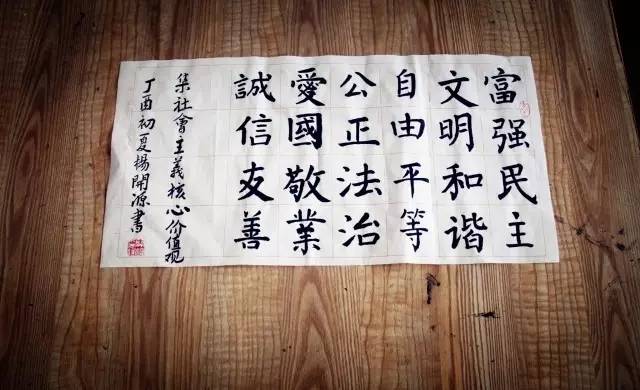 富强民主
文明和谐
自由平等
公正法治
愛國敬業
誠信友善
集社會主義核心价值观
丁酉初夏楊開源書